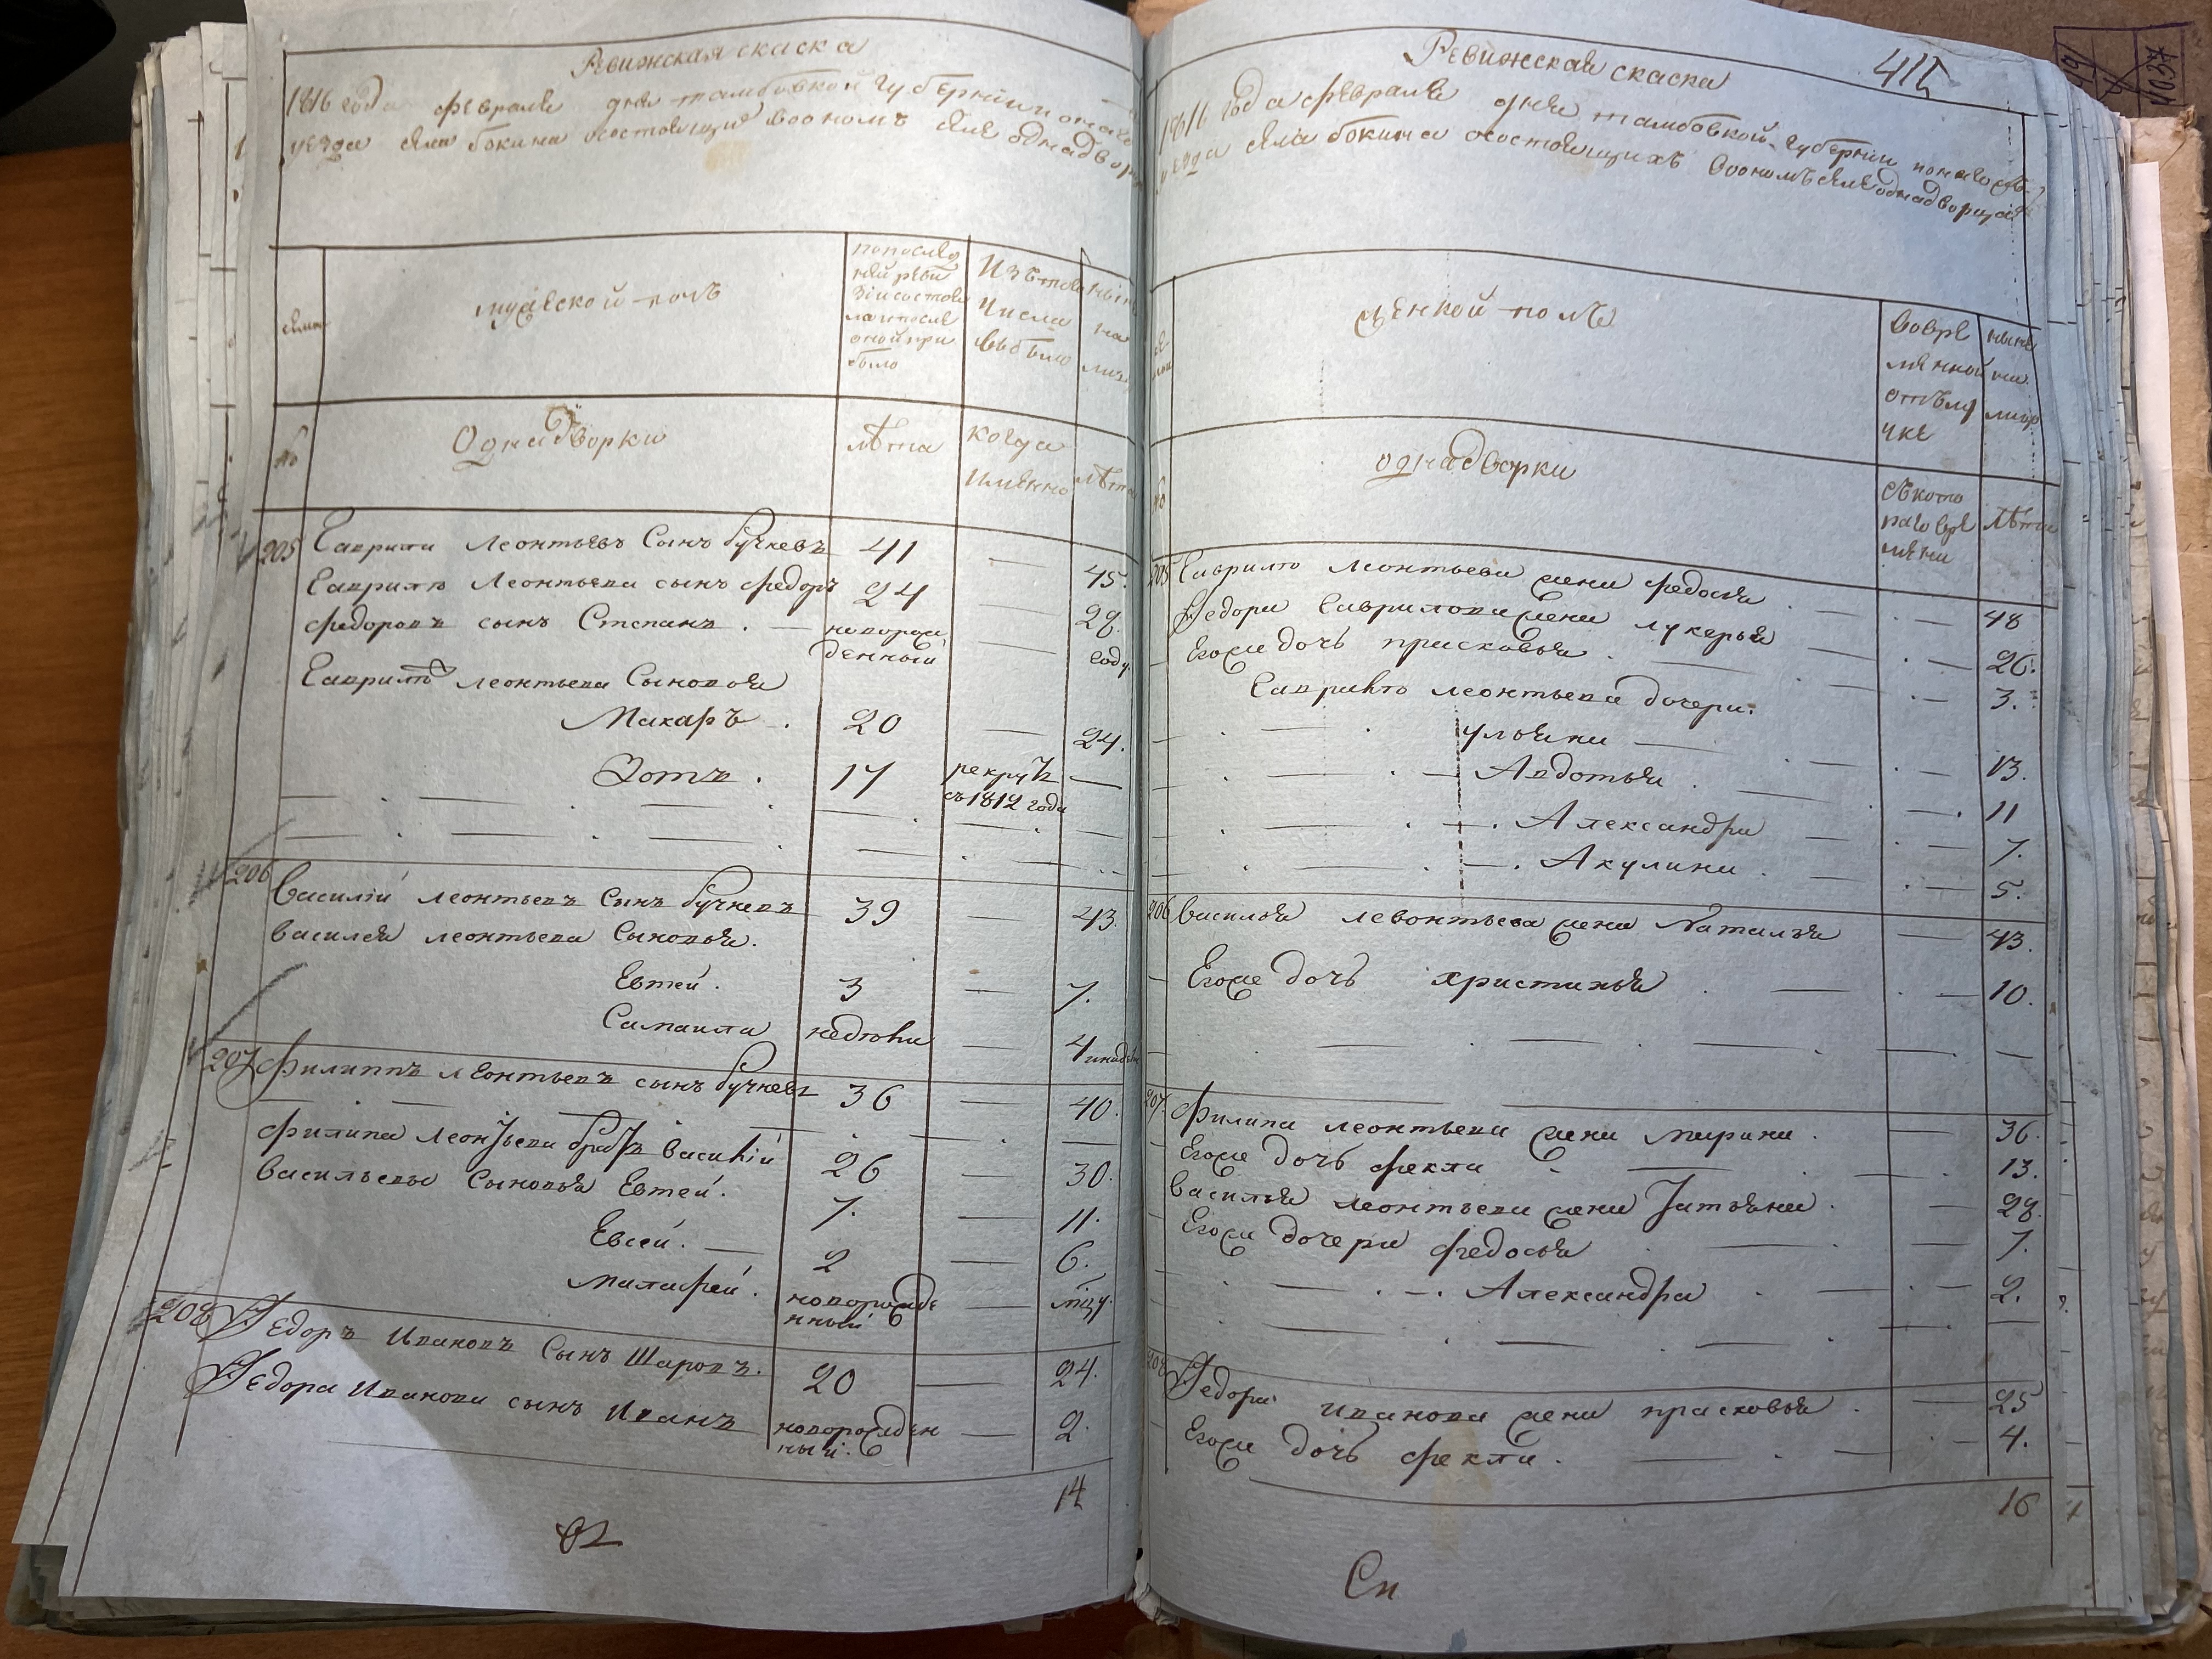 Ревижская скаска
1816 года февраля дня тамбовкой губернии
уезда села бокина осостоящиѣ воономъ селе однадвор
мужеской полъ
попослед
ней реви
зіи состоя
ло и после
оной при
было
Изътого
числа
выбыло
ны
на
лиц
№
Однадворки
лѣта
когда
именно
лѣта
205 Гаврила Леонтьевъ Сынъ бучневъ 41 — 45.
Гаврилы Леонтьева сынъ федоръ 24 — 28.
федоровъ сынъ Степанъ . — новорож
денный — году.
Гаврилы леонтьева Сыновья
Макаръ . 20 — 24.
Зотъ . 17 рекрутъ —
съ 1812 года
206 Василій леонтьевъ Сынъ бучневъ 39 — 43.
василья леонтьева Сыновья.
Евтей . 3 — 7.
Самаила недѣли — 4
207 филиппъ леонтьевъ сынъ бучневъ 36 — 40.
филипа леонтьева братъ василій 26 — 30.
васильевы Сыновья Евтей . 7. — 11.
Евсей . — 2 — 6.
малафей . новорожде
нный —
208 Федоръ Ивановъ Сынъ Шаровъ. 20 — 24.
Федора Иванова сынъ Иванъ новорожден
ный . — 2.
14
Ревижская скаска
411
1816 года февраля дня тамбовкой губернии
уезда села бокина осостоящихъ воономъ селе однадворца
женкой полъ
вовре
менной
отълу
чке
ныне
на
лицо
№
однадворки
съкото
раго вре
мени
лѣта
205 Гаврилы леонтьева жена федосья . — 48
Федора Гаврилова жена лукерья — . — 26.
Егоже дочь прасковья . — . — 3.
Гаврилы леонтьева дочери.
ульяна — . — 13.
— Авдотья . — . 11
— . Александра — . — 7.
— . Акулина . — . — 5.
206 василья левонтьева жена Наталья — 43.
Егоже дочь христинья . — . — 10.
207. филипа леонтьева жена марина . — 36.
Егоже дочь фекла — 13.
василья леонтьева жена Татьяна . — 28.
Егоже дочери федосья — 7.
— . — . Александра . — . — 2.
208 Федора иванова жена прасковья . — 25
Егоже дочь фекла . — . — 4.
16